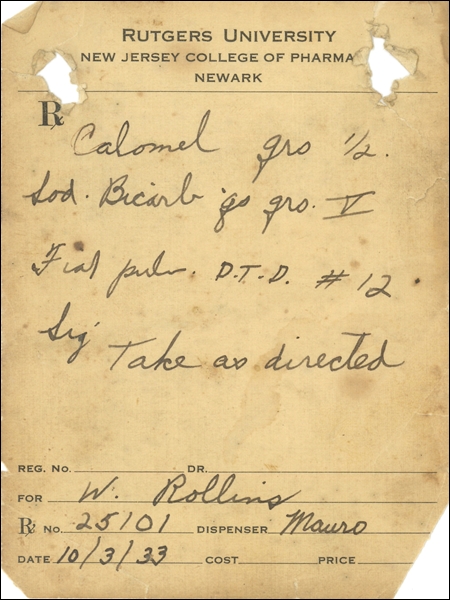 RUTGERS UNIVERSITY
NEW JERSEY COLLEGE OF PHARMA
NEWARK
℞
Calomel grs 1/2.
Sod. Bicarb qs grs. V
Fiat pulv. D.T.D. # 12
Sig
Take as directed
REG. NO. DR.
FOR W. Rollins
℞ NO. 25101 DISPENSER Mauro
DATE 10/3/33 COST PRICE